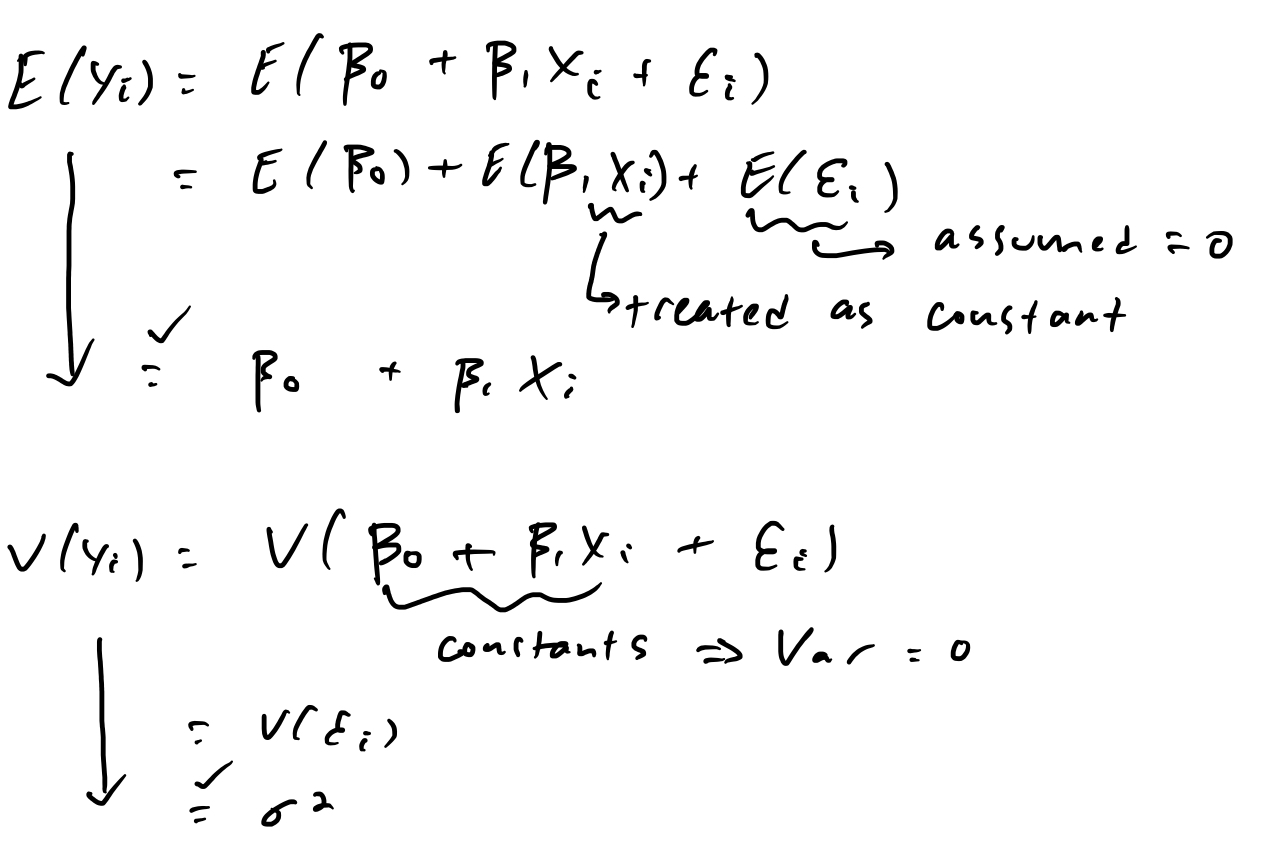 E(Yᵢ) = E(β₀ + β₁Xᵢ + εᵢ)
= E(β₀) + E(β₁Xᵢ) + E(εᵢ)
→ assumed = 0
→ treated as constant
✓
= β₀ + β₁Xᵢ
V(Yᵢ) = V(β₀ + β₁Xᵢ + εᵢ)
constants ⇒ Var = 0
= V(εᵢ)
✓
= σ²